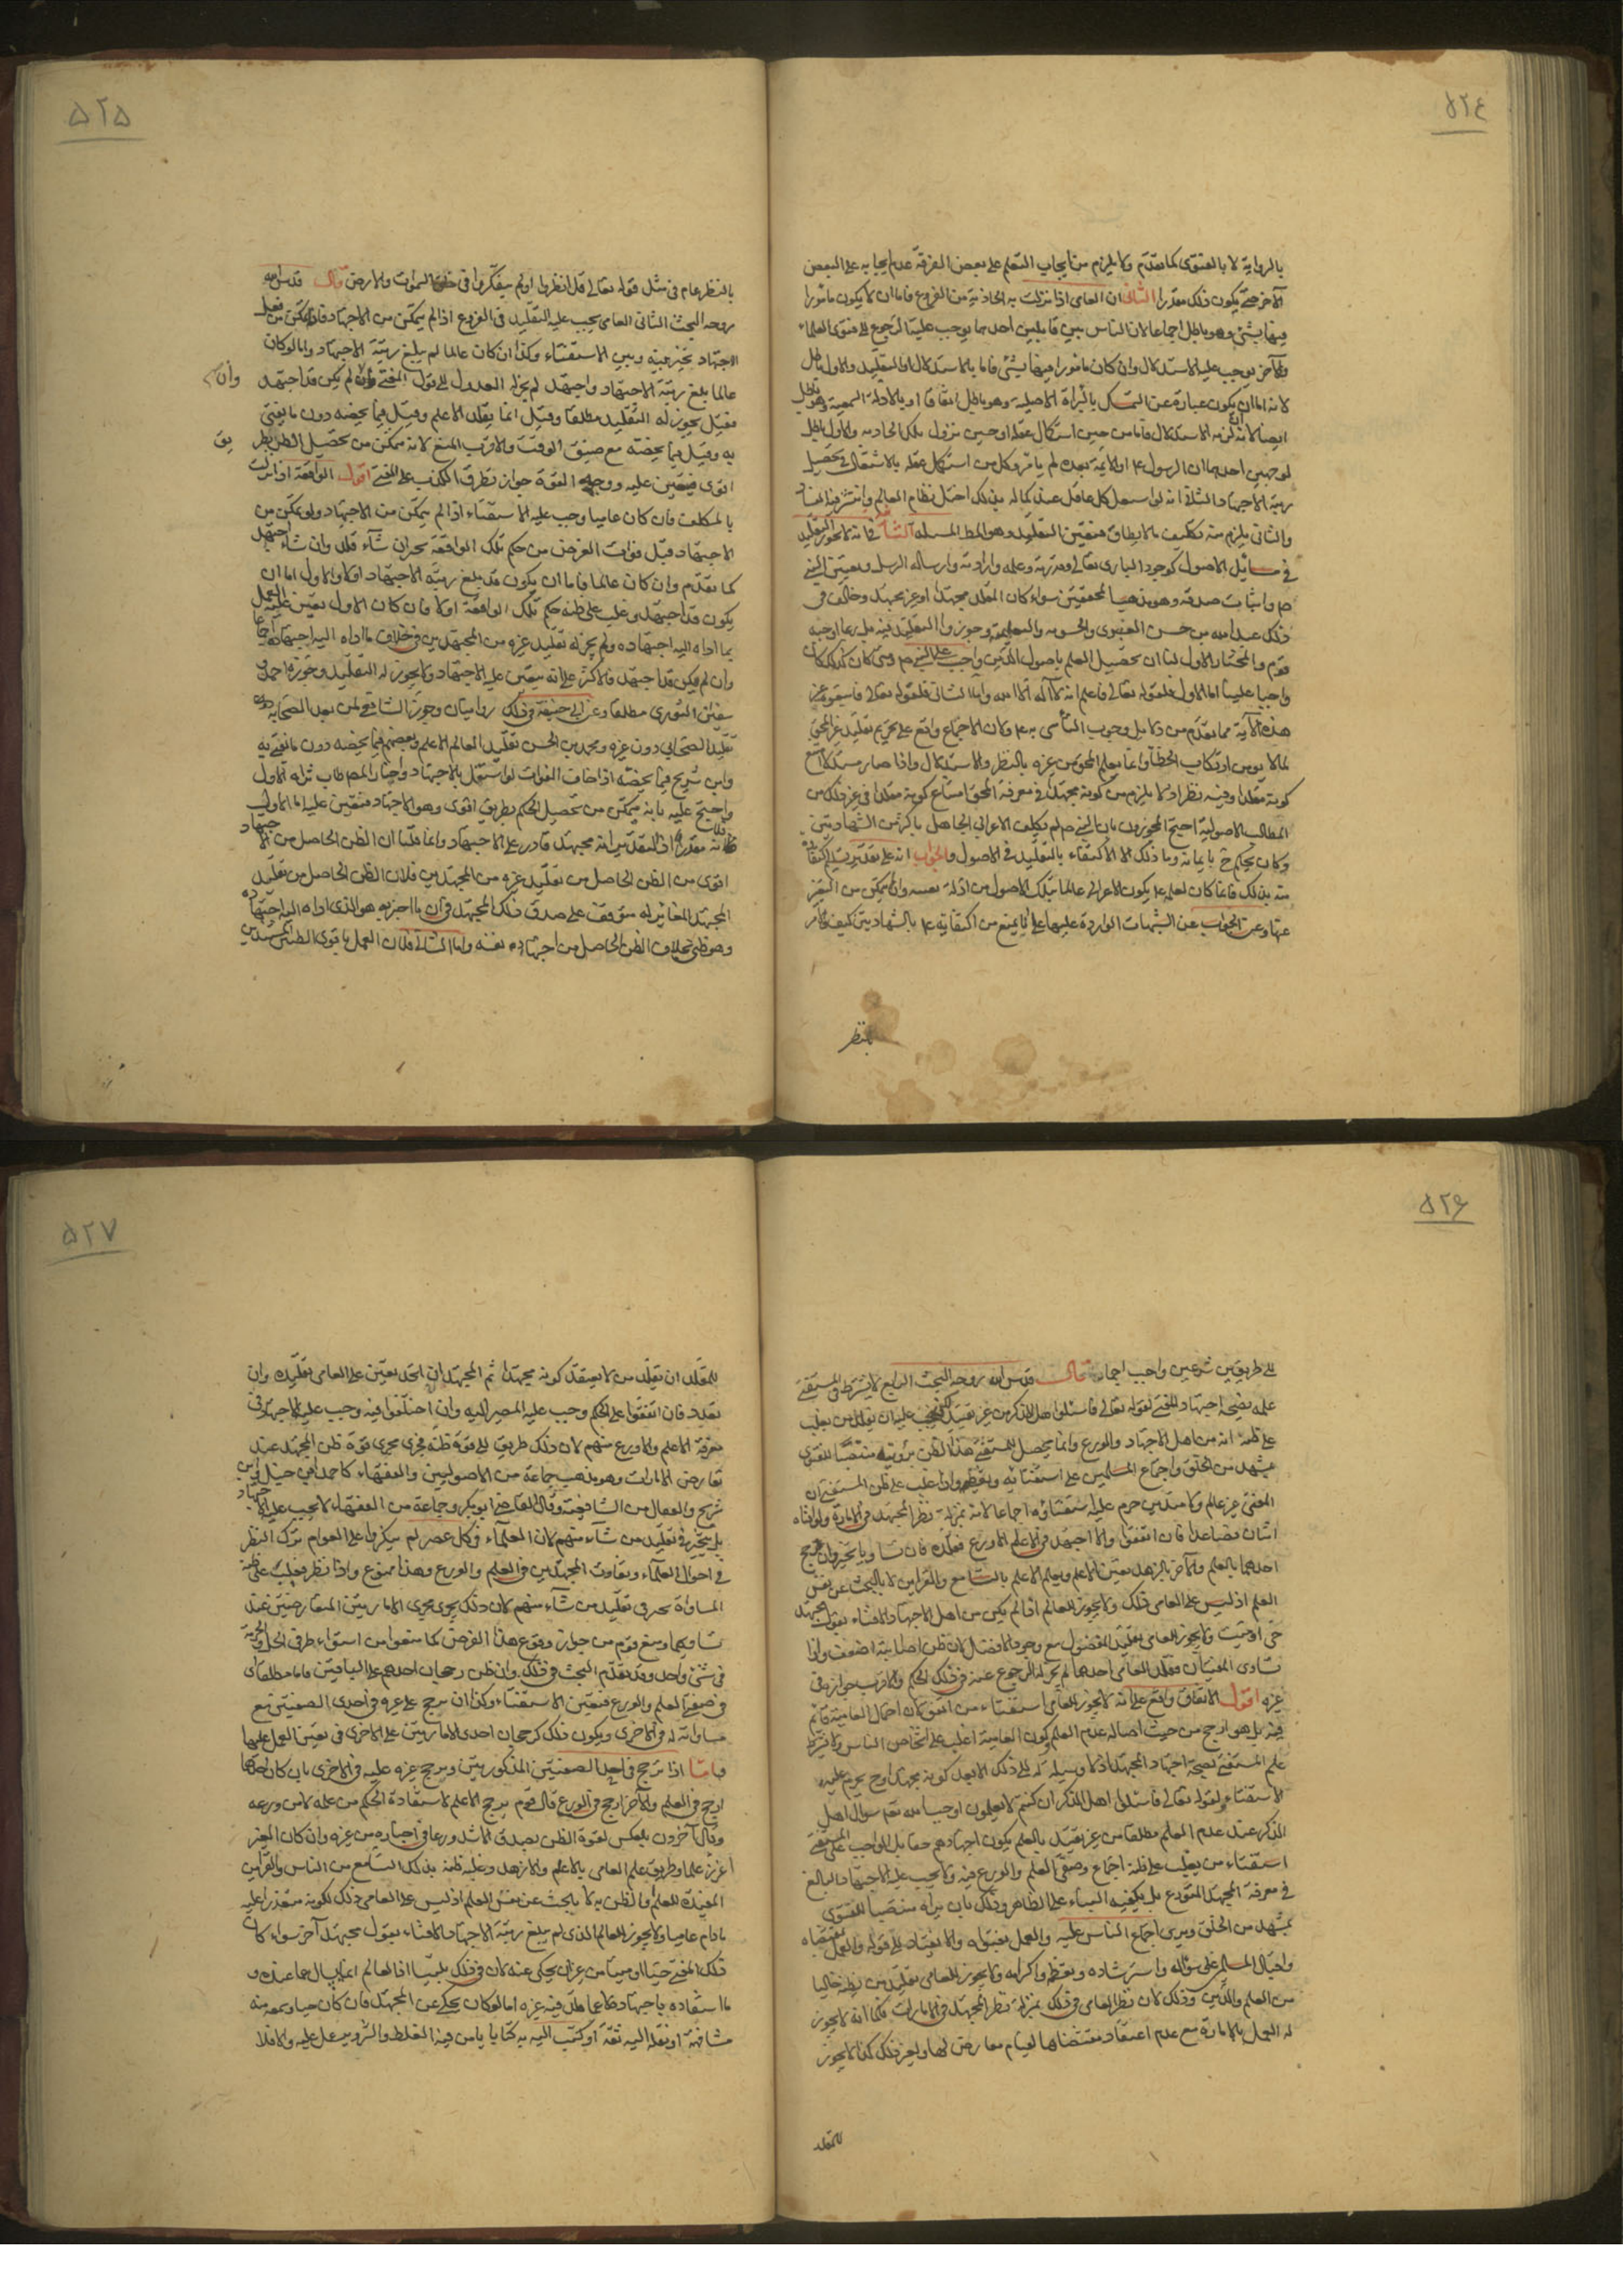 ۵۲۴
بالرواية لا بالفتوى كما تقدم ولا يلزم من ايجاب التعلم على بعض الفرقة عدم ايجابه على البعض
الآخر حتى يكون ذلك مقدرا الثاني ان العامي اذا نزلت به الحادثة من الفروع فاما ان لا يكون مامورا
فيها بشئ وهو باطل اجماعا لان الناس بين قايلين احدهما يوجب عليه الرجوع الى فتوى العلماء
والآخر يوجب عليه الاستدلال وان كان مامورا فيها بشئ فاما بالاستدلال او التقليد والاول باطل
لانه اما ان يكون عبارة عن التمسك بالبراءة الاصلية وهو باطل اتفاقا او بالادلة السمعية وهو باطل
ايضا لانه لو لزمه الاستدلال فاما من حين استكمال عقله او حين نزول تلك الحادثة والاول باطل
لوجهين احدهما ان الرسول ع او الائمة بعده لم يامروا كل من استكمل عقله بالاشتغال في تحصيل
رتبة الاجتهاد الثاني انه لو اشتغل كل عاقل عند كماله بذلك اختل نظام العالم وانتشر فيه الفساد
والثاني يلزم منه تكليف ما لا يطاق فتعين التقليد وهو المط المسئلة الثانية في انه لا يجوز التقليد
في مسائل الاصول كوجود الباري تعالى وقدرته وعلمه وارادته وارساله الرسل وتعيين النبي
ص واثبات صدقه وهو مذهب المحققين سواء كان المقلد مجتهدا او غير مجتهد وخالف في
ذلك عبد الله بن حسن العنبري والحشوية والتعليمية وجوزوا التقليد فيه بل ربما اوجبه
قوم والمختار الاول لنا ان تحصيل العلم باصول الدين واجب على النبي ص ومتى كان كذلك كان
واجبا علينا اما الاول فلقوله تعالى فاعلم انه لا اله الا الله واما الثاني فلقوله تعالى فاتبعوه غير
هذه الآية مما تقدم من دلايل وجوب التأسي به ع ولان الاجماع واقع على تحريم تقليد غير المحق
لما لا يومن ارتكاب الخطأ وانما يعلم المحق من غيره بالنظر والاستدلال واذا صار مستدلا امتنع
كونه مقلدا وفيه نظر اذ لا يلزم من كونه مجتهدا في معرفة المحق امتناع كونه مقلدا في غير ذلك من
المطالب الاصولية احتج المجوزون بان النبي ص لم يكلف الاعرابي الجاهل باكثر من الشهادتين
وكان يحكم ح بايمانه وما ذلك الا الاكتفاء بالتقليد في الاصول والجواب انه على تقدير الاكتفاء
منه بذلك فانما كان لعلمه ع يكون الاعرابي عالما بتلك الاصول من ادلة نفسه وان لم يتمكن من التعبير
عنها وعن الجواب عن الشبهات الواردة عليها على انا نمنع من اكتفائه ع بالشهادتين كيف والامر
بالنظر
۵۲۵
بالنظر عام في مثل قوله تعالى قل انظروا اولم يتفكروا في خلق السموات والارض قال قدس الله
روحه البحث الثاني العامي يجب عليه التقليد في الفروع اذا لم يتمكن من الاجتهاد فان تمكن من فعل
الاجتهاد تخير بينه وبين الاستفتاء وكذا ان كان عالما لم يبلغ رتبة الاجتهاد واما لو كان
عالما بلغ رتبة الاجتهاد واجتهد لم يجز له العدول الى قول المفتي وان لم يكن قد اجتهد
وان
فقيل يجوز له التقليد مطلقا وقيل انما يقلد الاعلم وقيل فيما يخصه دون ما يفتي
به وقيل فيما يخصه مع ضيق الوقت والاقرب المنع لانه متمكن من تحصيل الظن بطريق
يق
اقوى فيتعين عليه ووجه القوة جواز تطرق الكذب على المفتي اقول الواقعة اذا نزلت
بالمكلف فان كان عاميا وجب عليه الاستفتاء اذا لم يتمكن من الاجتهاد ولو تمكن من
الاجتهاد قبل فوات الغرض من حكم تلك الواقعة تخير ان شاء قلد وان شاء اجتهد
كما تقدم وان كان عالما فاما ان يكون قد بلغ رتبة الاجتهاد او لا والاول اما ان
يكون قد اجتهد وغلب على ظنه حكم تلك الواقعة او لا فان كان الاول تعين عليه العمل
بما اداه اليه اجتهاده ولم يجز له تقليد غيره من المجتهدين في خلاف ما اداه اليه اجتهاده اجماعا
وان لم يكن قد اجتهد فالاكثر على انه يتعين عليه الاجتهاد ولا يجوز له التقليد وجوزه احمد و
سفيان الثوري مطلقا وعن ابي حنيفة في ذلك روايتان وجوز الشافعي لمن بعد الصحابة
تقليد الصحابي دون غيره ومحمد بن الحسن تقليد العالم الاعلم وبعضهم فيما يخصه دون ما يفتي به
وابن شريح فيما يخصه اذا خاف الفوات لو اشتغل بالاجتهاد واختار المص طاب ثراه الاول
واحتج عليه بانه متمكن من تحصيل الحكم بطريق اقوى وهو الاجتهاد فتعين عليه اما الاول
فلانه مقدر اذ التقدير انه مجتهد قادر على الاجتهاد وانما قلنا ان الظن الحاصل من الاجتهاد
اقوى من الظن الحاصل من تقليد غيره من المجتهدين فلان الظن الحاصل من تقليد
المجتهد المغاير له متوقف على صدق ذلك المجتهد في ان ما اخبر به هو الذي اداه اليه اجتهاده
وهو ظني بخلاف الظن الحاصل من اجتهاده نفسه واما الثاني فلان العمل باقوى الظنين المستندين
۵۲۶
الى طريقين شرعيين واجب اجماعا قال قدس الله روحه البحث الرابع لا يشترط في المستفتي
علمه بصحة اجتهاد المفتي لقوله تعالى فاسئلوا اهل الذكر من غير تقييد لكن يجب عليه ان يقلد من يغلب
على ظنه انه من اهل الاجتهاد والورع وانما يحصل للمستفتي هذا الظن برؤيته منتصبا للفتوى
بمشهد من الخلق واجتماع المسلمين على استفتائه وتعظيمه واذا غلب على ظن المستفتي ان
المفتي غير عالم ولا متدين حرم عليه استفتاؤه اجماعا لانه بمنزلة نظر المجتهد في الامارة ولو افتاه
اثنان فصاعدا فان اتفقوا والا اجتهد في الاعلم الاورع فقلده فان تساويا تخير وان ترجح
احدهما بالعلم والآخر بالزهد تعين الاعلم ويعلم الاعلم بالتسامع والقراين لا بالبحث عن نفس
العلم اذ ليس على العامي ذلك ولا يجوز للعالم اذا لم يكن من اهل الاجتهاد الافتاء بقول مجتهد
حي او ميت ولا يجوز للعامي تقليد المفضول مع وجود الافضل لان ظن اصابته اضعف ولو
تساوى المفتيان فقلد العامي احدهما لم يجز له الرجوع عنه في ذلك الحكم والاقرب جوازه في
غيره اقول الاتفاق واقع على انه لا يجوز للعامي استفتاء من اتفق لان احتمال العامية قائم
فيه بل هو ارجح من حيث اصالة عدم العلم وكون العامية اغلب على اشخاص الناس ولا يشترط
علم المستفتي بصحة اجتهاد المجتهد اذ لا وسيلة له الى ذلك الا بعد كونه مجتهدا وح يحرم عليه
الاستفتاء ولقوله تعالى فاسئلوا اهل الذكر ان كنتم لا تعلمون اوجب الله تع سوال اهل
الذكر عند عدم العلم مطلقا من غير تقييد بالعلم بكون اجتهادهم حقا بل الواجب على المستفتي
استفتاء من يغلب على ظنه اجتماع وصفي العلم والورع فيه ولا يجب عليه الاجتهاد البالغ
في معرفة المجتهد المتورع بل يكفيه البناء على الظاهر وذلك بان يراه منتصبا للفتوى
بمشهد من الخلق ويرى اجتماع الناس عليه والعمل بفتواه والانقياد الى قوله والعمل بمقتضاه
واقبال المسلمين على سؤاله واسترشاده وتعظيمه واكرامه ولا يجوز للعامي تقليد من يظنه خاليا
من العلم والدين وذلك لان نظر العامي في ذلك بمنزلة نظر المجتهد في الامارات فكما انه لا يجوز
له العمل بالامارة مع عدم اعتقاد مقتضاها لقيام معارض لها ولغير ذلك كذا لا يجوز
للمقلد
۵۲۷
للمقلد ان يقلد من لا يعتقد كونه مجتهدا ثم المجتهد ان اتحد تعين على العامي تقليده وان
تعدد فان اتفقوا على الحكم وجب عليه المصير اليه وان اختلفوا فيه وجب عليه الاجتهاد في
معرفة الاعلم والاورع منهم لان ذلك طريق الى قوة ظنه فجرى مجرى قوة ظن المجتهد عند
تعارض الامارات وهو مذهب جماعة من الاصوليين والفقهاء كاحمد بن حنبل وابن
شريح والقفال من الشافعية وقال القاضي ابو بكر وجماعة من الفقهاء لا يجب عليه الاجتهاد
بل يتخير في تقليد من شاء منهم لان العلماء في كل عصر لم ينكروا على العوام ترك النظر
في احوال العلماء وتفاوت المجتهدين في العلم والورع وهذا ممنوع واذا نظر فغلب على ظنه
المساواة تخير في تقليد من شاء منهم لان ذلك يجرى مجرى الامارتين المتعارضتين عند
تساويهما ومنع قوم من جواز وقوع هذا الفرض كما منعوا من استواء طرفي الحل والحرمة
في شئ واحد وقد تقدم البحث في ذلك وان ظن رجحان احدهم على الباقين فاما مطلقا اى
في صفتي العلم والورع فتعين الاستفتاء وكذا ان ترجح على غيره في احدى الصفتين مع
مساواته له في الاخرى ويكون ذلك كرجحان احدى الامارتين على الاخرى في تعين العمل عليها
واما اذا ترجح في احد الصفتين المذكورتين وترجح غيره عليه في الاخرى بان كان احدهما
ارجح في العلم والآخر ارجح في الورع قال قوم يرجح الاعلم لاستفادة الحكم من علمه لا من ورعه
وقال آخرون بالعكس لقوة الظن بصدق الاشد ورعا في اخباره من غيره وان كان الغير
اغزر علما وطريق علم العامي بالاعلم والازهد وغلبة ظنه بذلك التسامع من الناس والقراين
المفيدة للعلم او الظن به لا بالبحث عن نفس العلم اذ ليس على العامي ذلك لكونه متعذرا عليه
ما دام عاميا ولا يجوز للعالم الذي لم يبلغ رتبة الاجتهاد الافتاء بقول مجتهد آخر سواء كان
ذلك المفتي حيا او ميتا من غير ان يحكى عنه لان في ذلك تلبيسا اذ العالم انما يسال عما عنده و
ما استفاده باجتهاده لا عما قلد فيه غيره اما لو كان يحكى عن المجتهد فان كان حيا وسمعه منه
مشافهة او نقله اليه ثقة او كتب اليه به كتابا يامن فيه الغلط والتزوير عمل عليه والا فلا